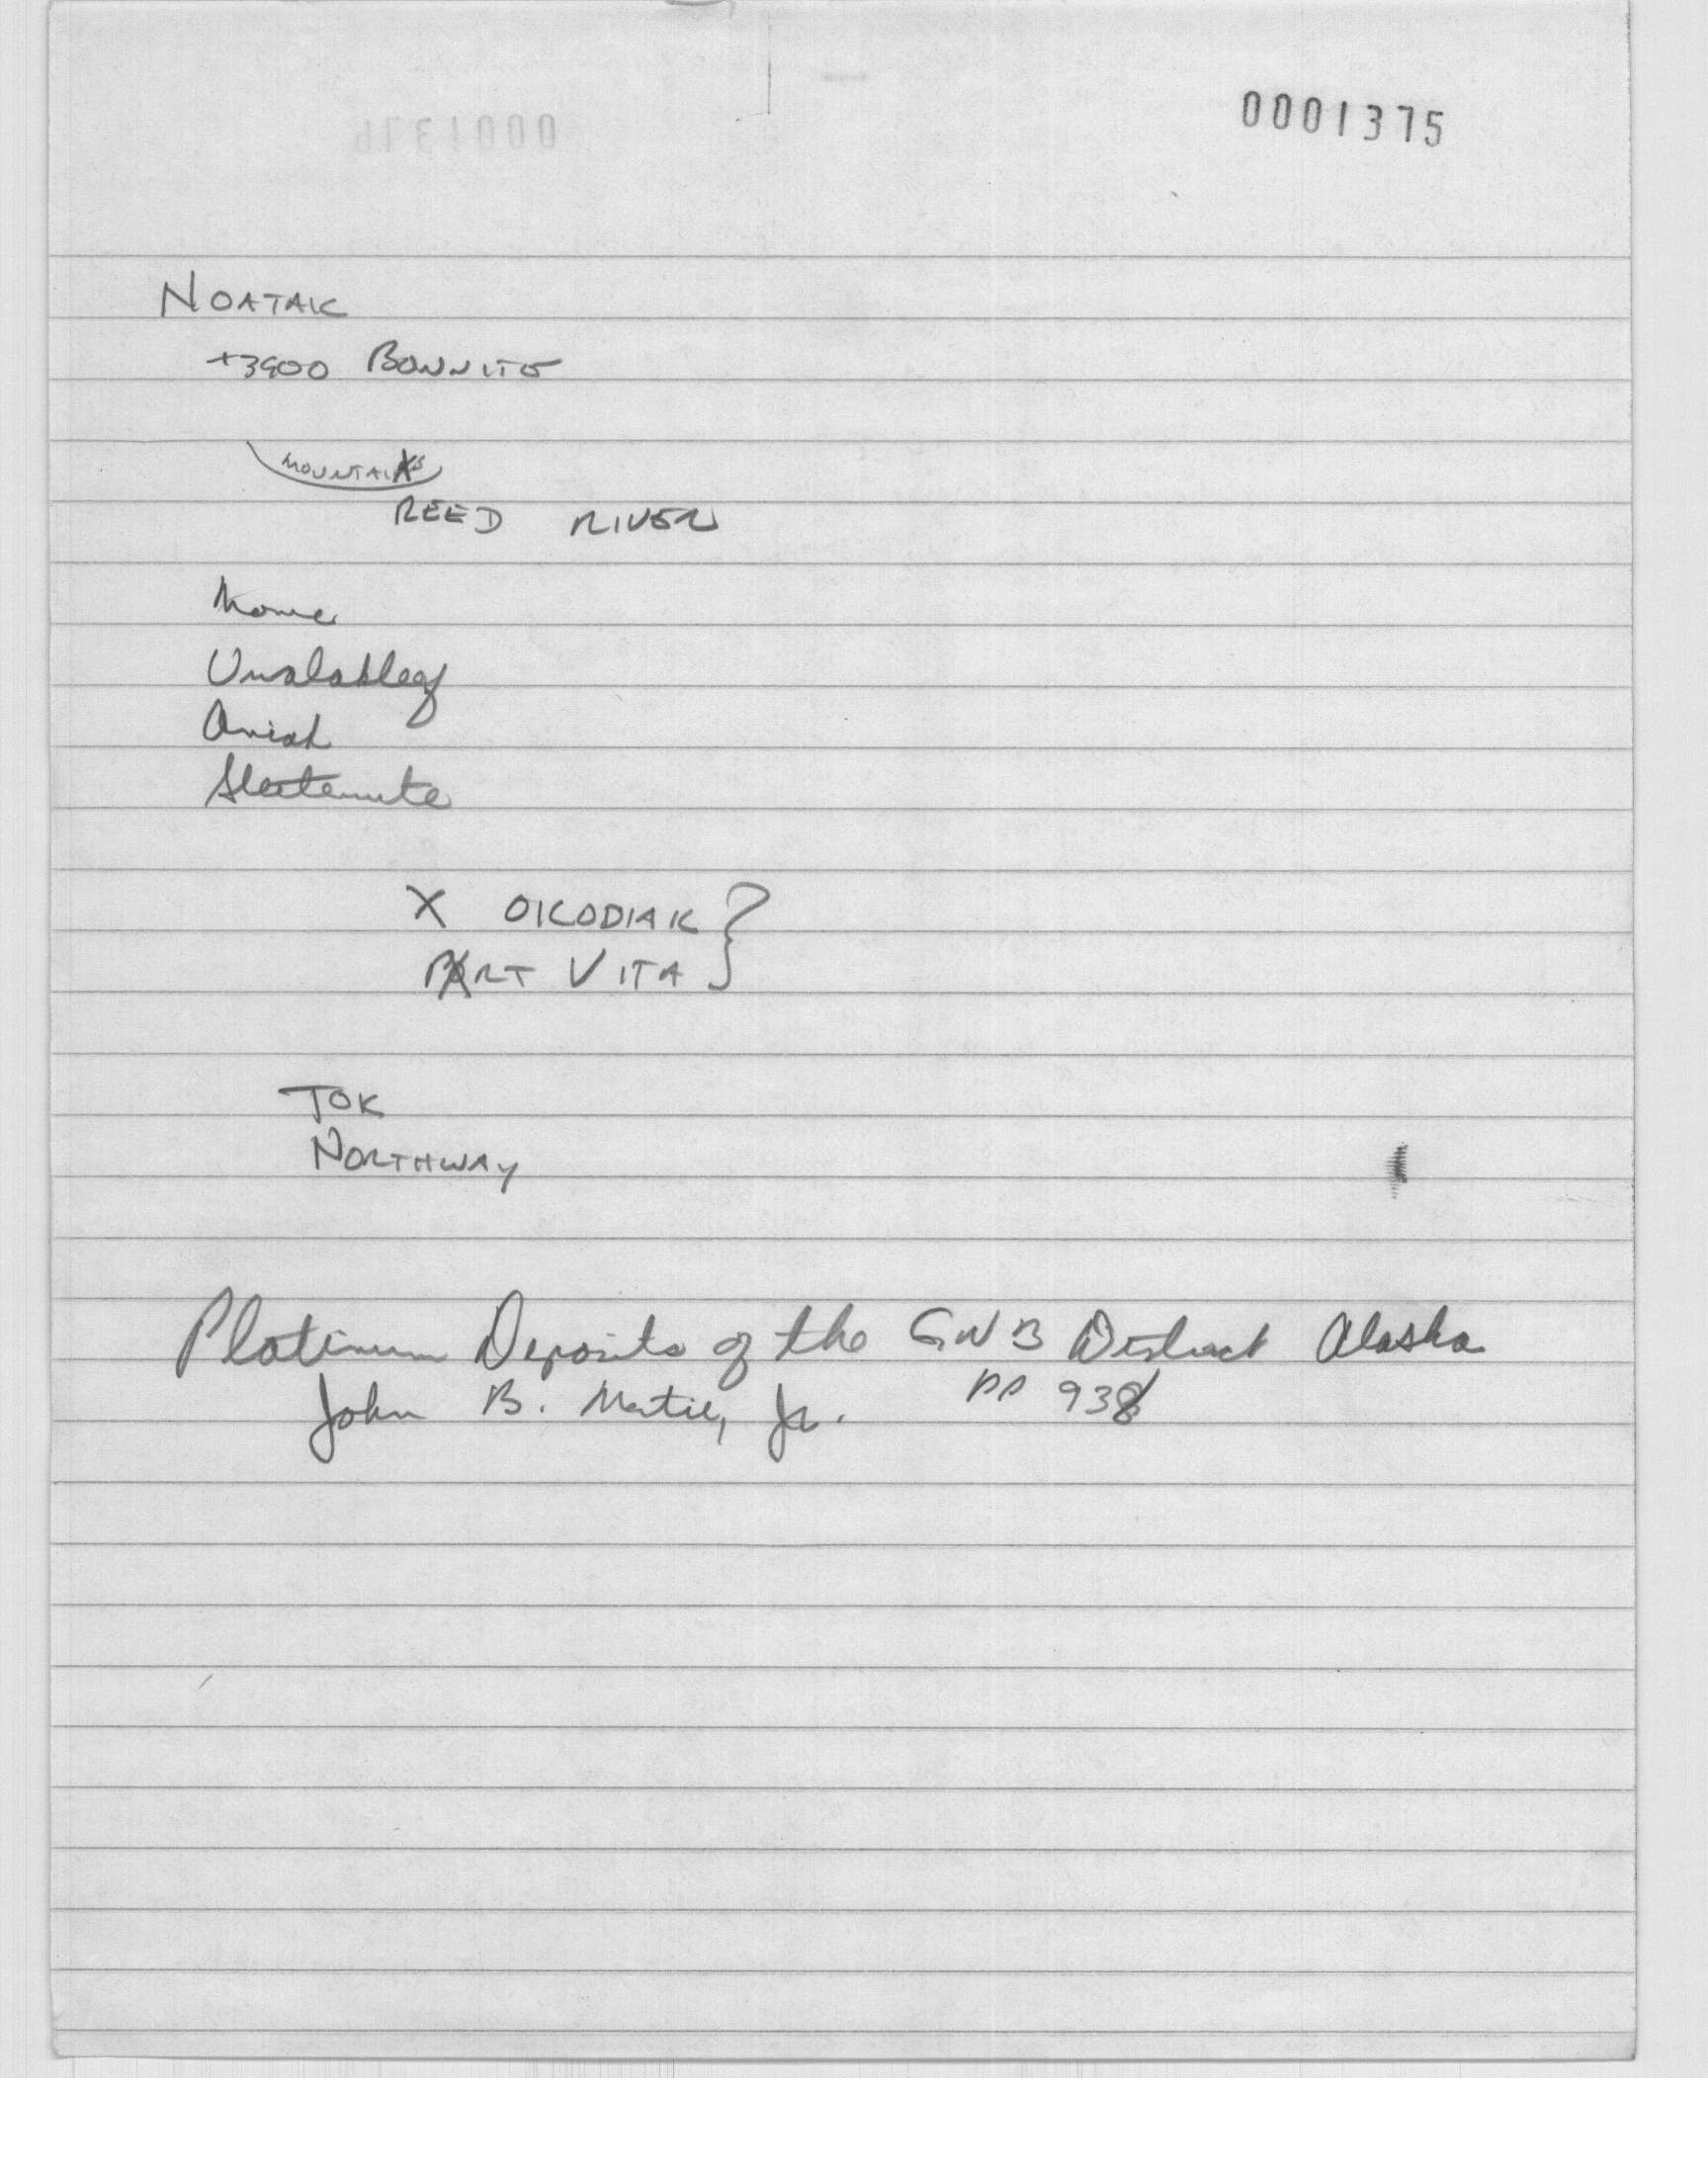 0001375
NOATAK
+3900 BORNITE
MOUNTAINS
REED RIVER
Nome
Unalakleet
Aniak
Sleetemute
X OKODIAK }
PORT VITA
TOK
NORTHWAY
Platinum Deposits of the GNB District Alaska
John B. Mertie, Jr. PP 938